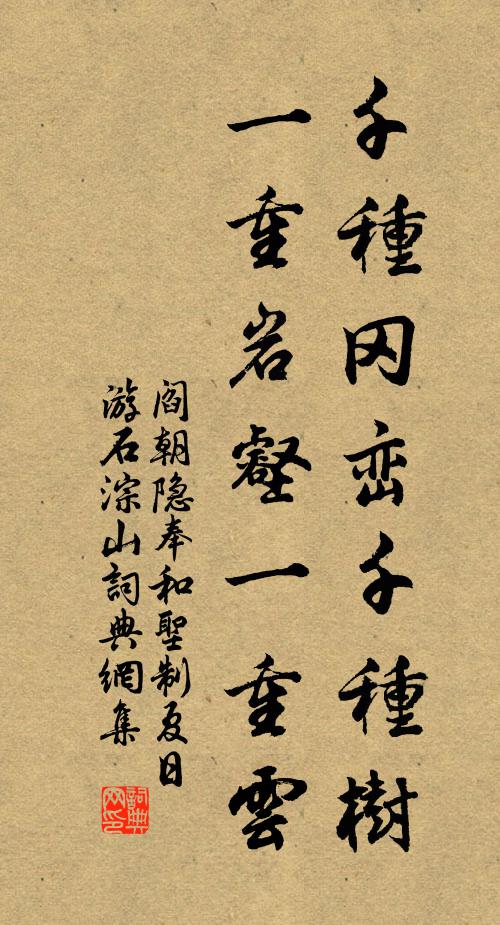 千種冈峦千種樹
一重岩壑一重雲
阎朝隐奉和聖制夏日
游石淙山詞典網集
詞典網印